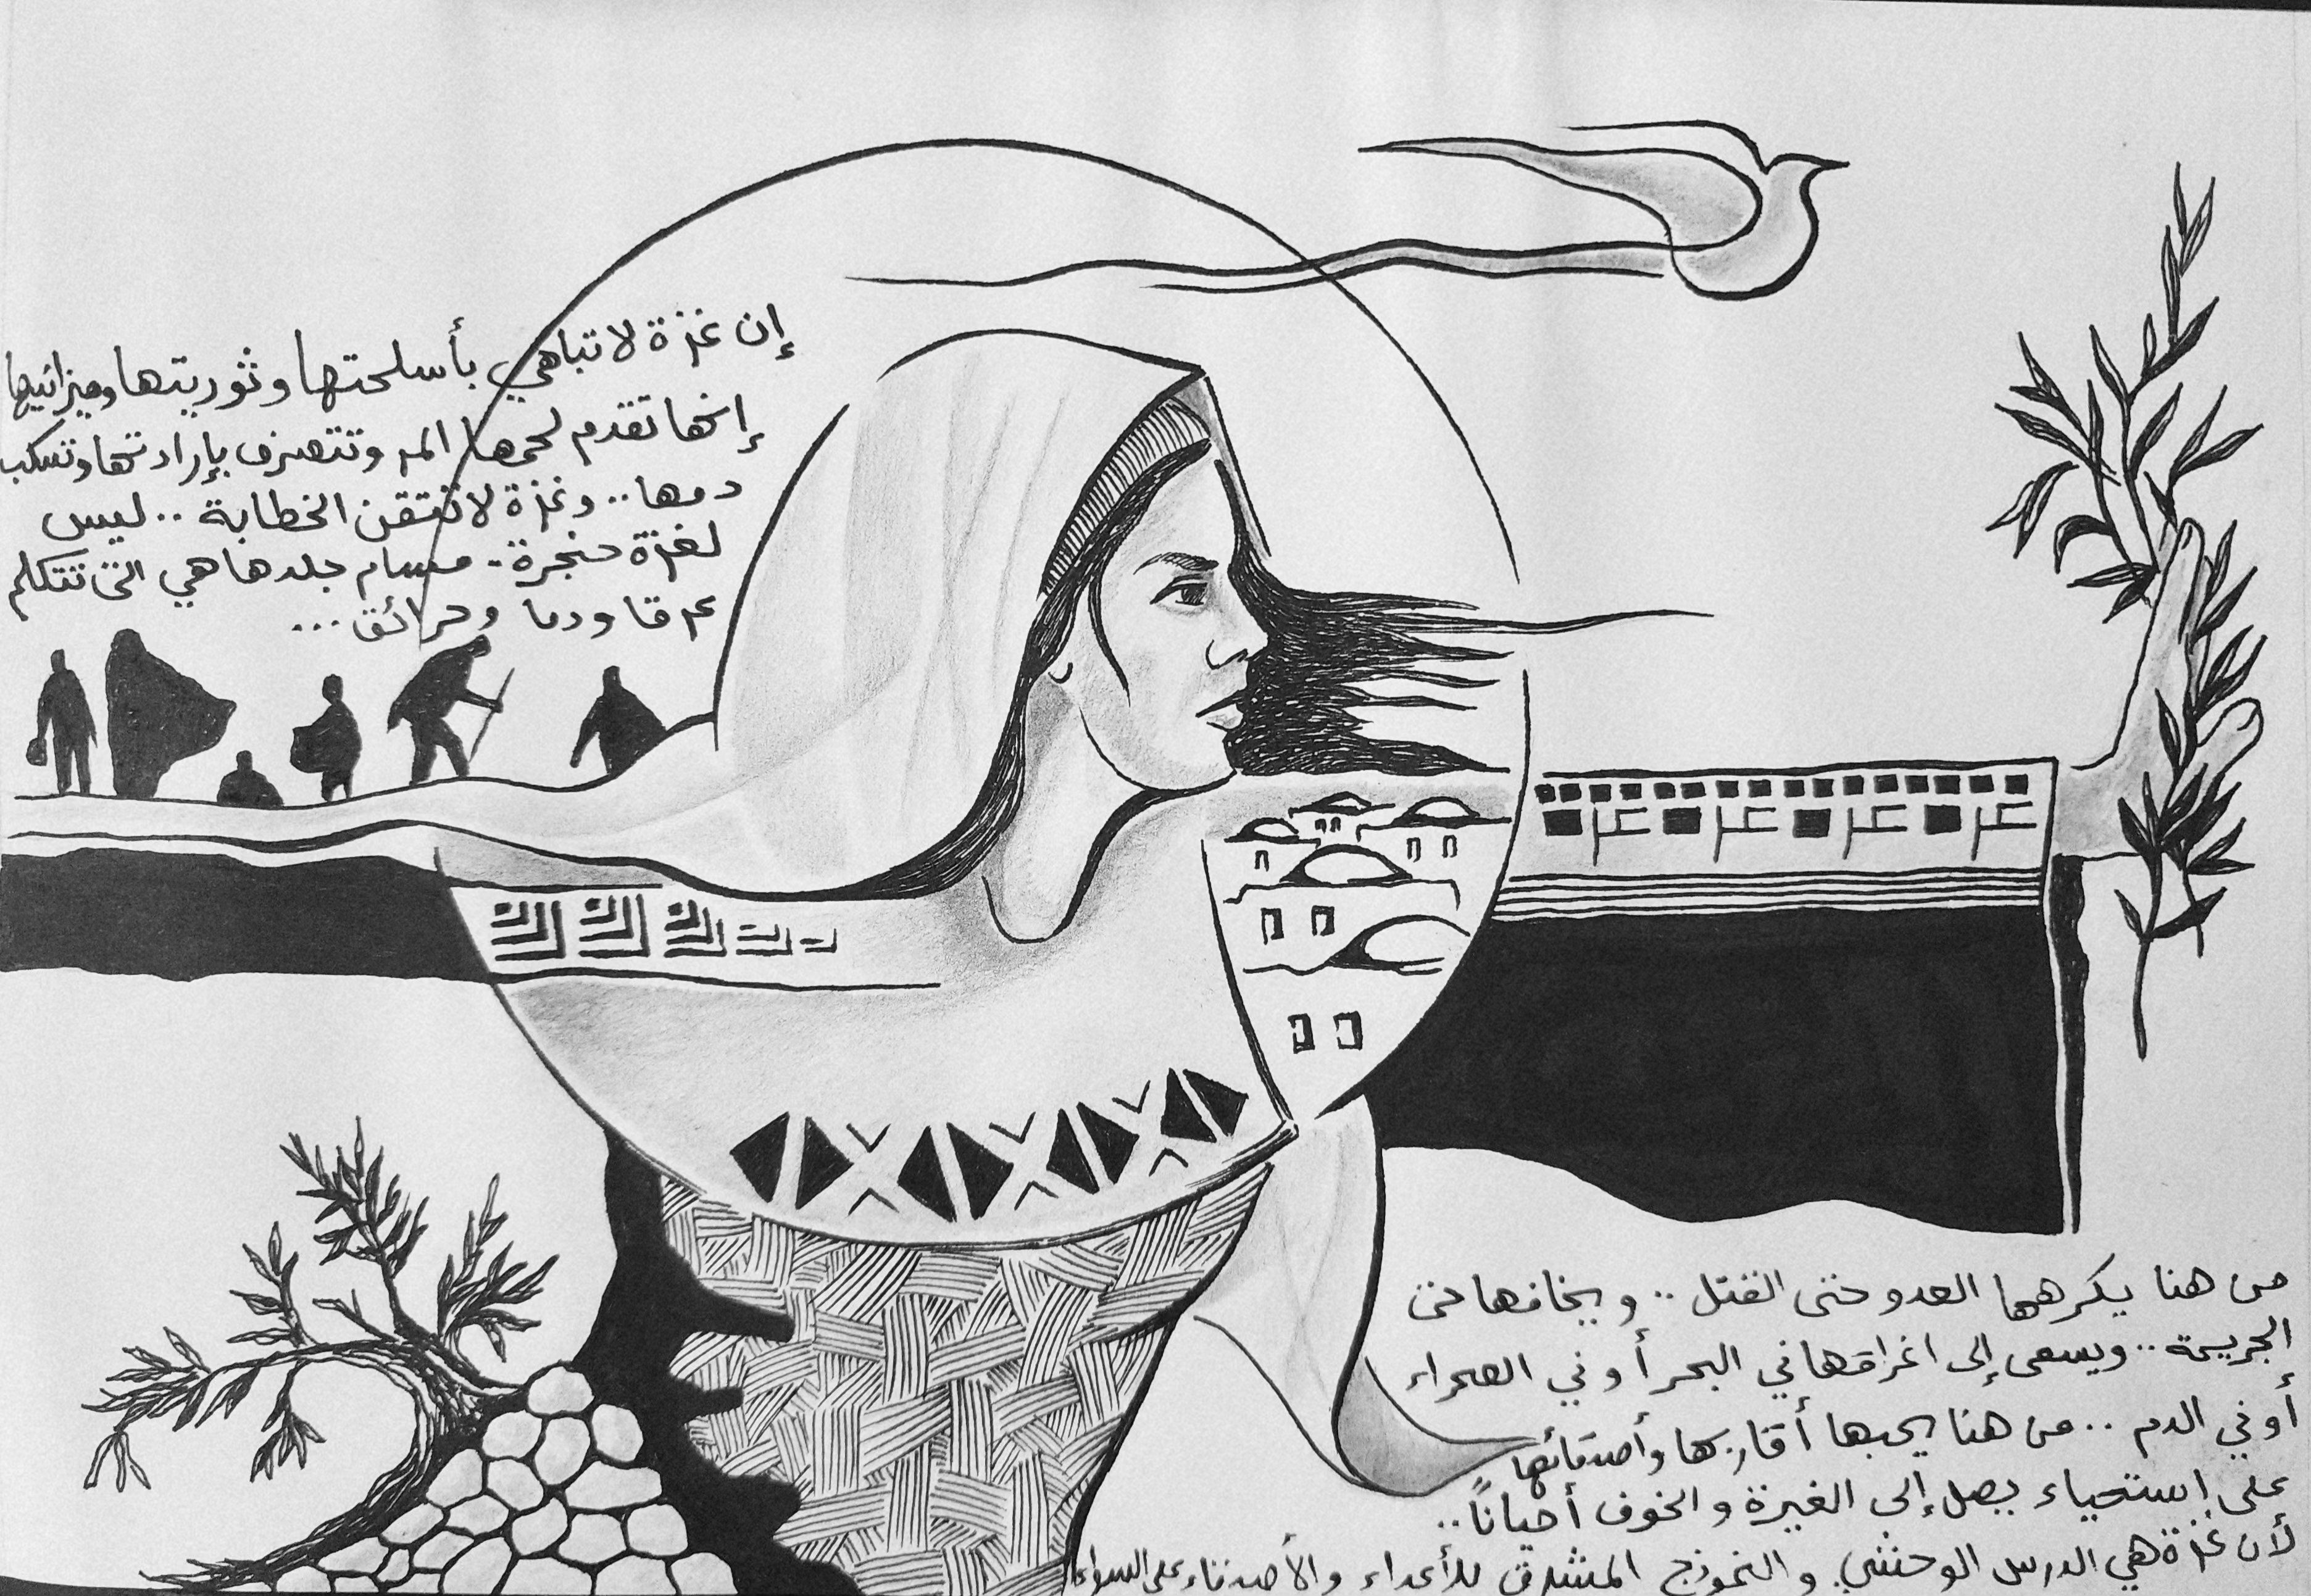 إن غزة لا تباهي بأسلحتها وثوريتها وميزانيتها
إنها تقدم لحمها المر وتتصرف بإرادتها وتسكب
دمها.. وغزة لا تتقن الخطابة.. ليس
لغزة حنجرة.. مسام جلدها هي التي تتكلم
عرقا ودما وحرائق...
من هنا يكرهها العدو حتى القتل.. ويخافها حتى
الجريمة.. ويسعى إلى اغراقها في البحر أو في الصحراء
أو في الدم.. من هنا يحبها أقاربها وأصدقائها
على إستحياء يصل إلى الغيرة والخوف أحياناً..
لأن غزة هي الدرس الوحشي والنموذج المشرق للأعداء والأصدقاء على السواء